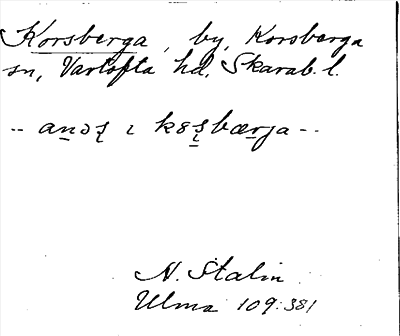 Korsberga, by, Korsberga
sn, Vartofta hd, Skarab. l.
-- ɑ ɩ --
N. Stalin
Ulma 109:381